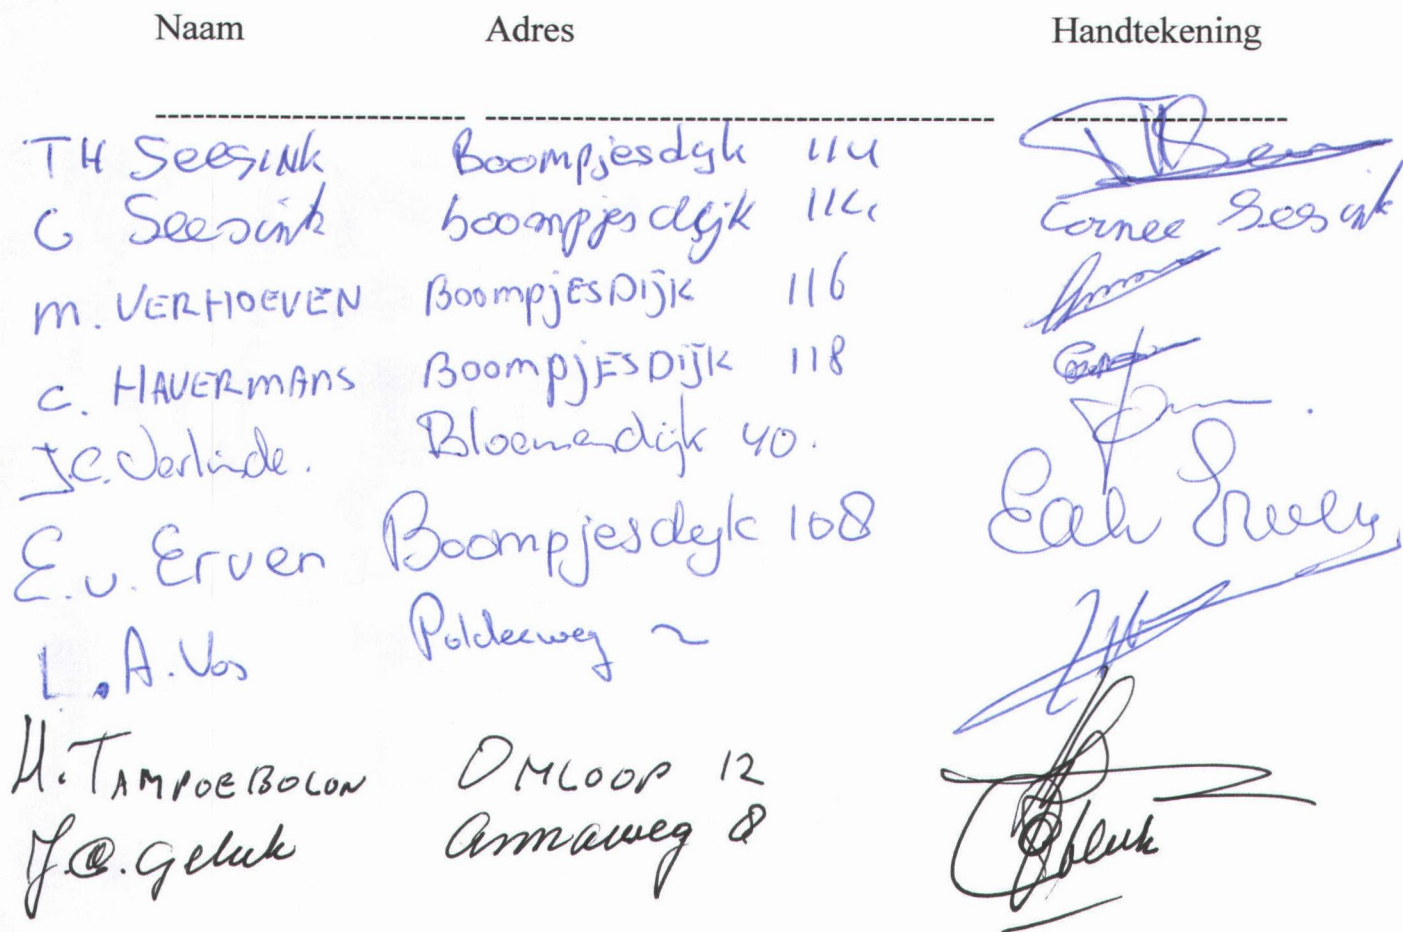 Naam Adres Handtekening
TH Seesink Boompjesdyk 114
C Seesink boompjesdijk 114 Cornee Seesink
M. VERHOEVEN BoompjesDijk 116
C. HAVERMANS BoompjesDijk 118
J.C. Verlinde. Bloemendijk 40.
E.v. Erven Boompjesdyk 108
L.A. Vos Polderweg 2
H. TAMPOEBOLON OMLOOP 12
J.C. Geluk Annaweg 8